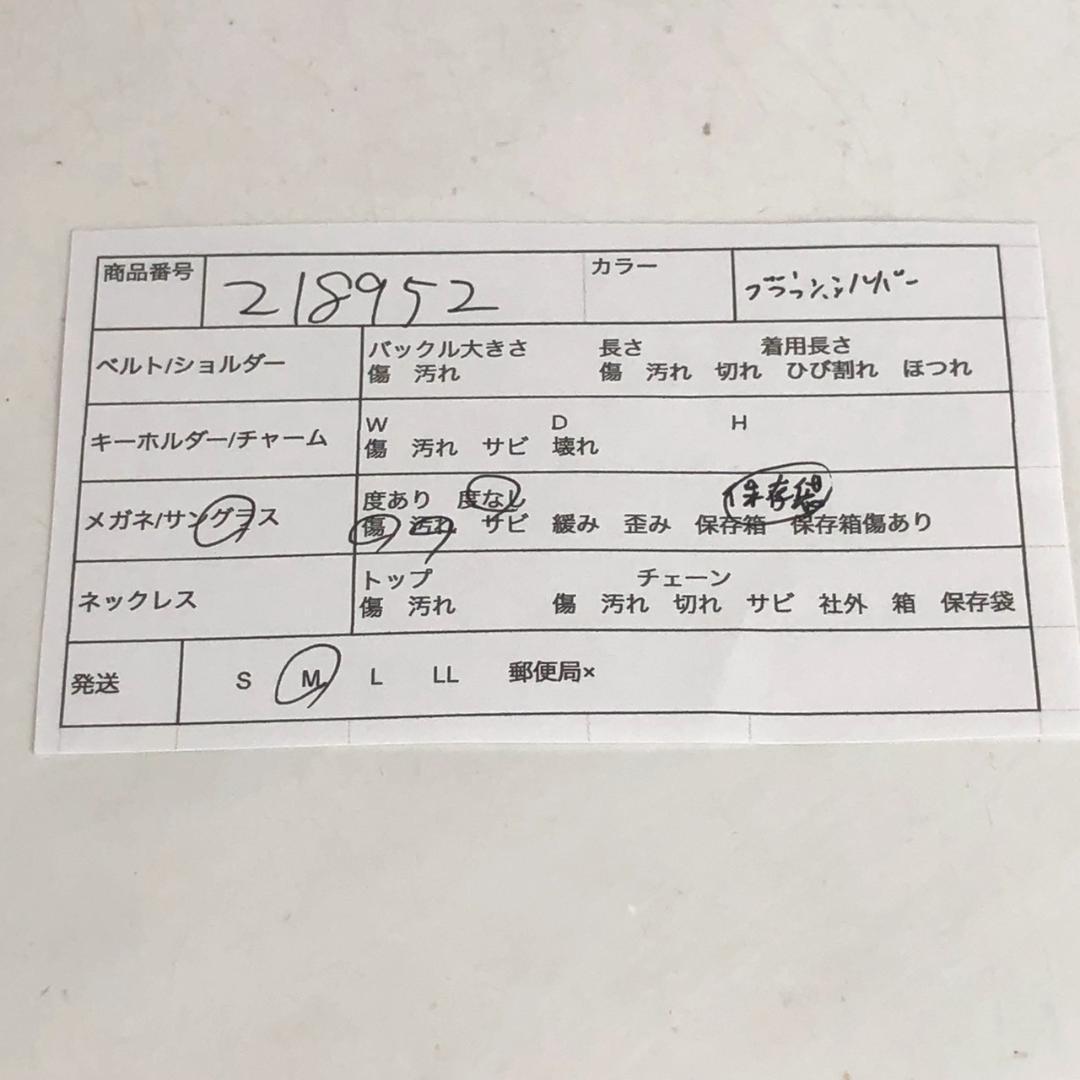 商品番号 218952 カラー ブラウン、シルバー
ベルト/ショルダー バックル大きさ 長さ 着用長さ
傷 汚れ 傷 汚れ 切れ ひび割れ ほつれ
キーホルダー/チャーム W D H
傷 汚れ サビ 壊れ
メガネ/サングラス 度あり 度なし 保存袋
傷 汚れ サビ 緩み 歪み 保存箱 保存箱傷あり
ネックレス トップ チェーン
傷 汚れ 傷 汚れ 切れ サビ 社外 箱 保存袋
発送 S M L LL 郵便局×